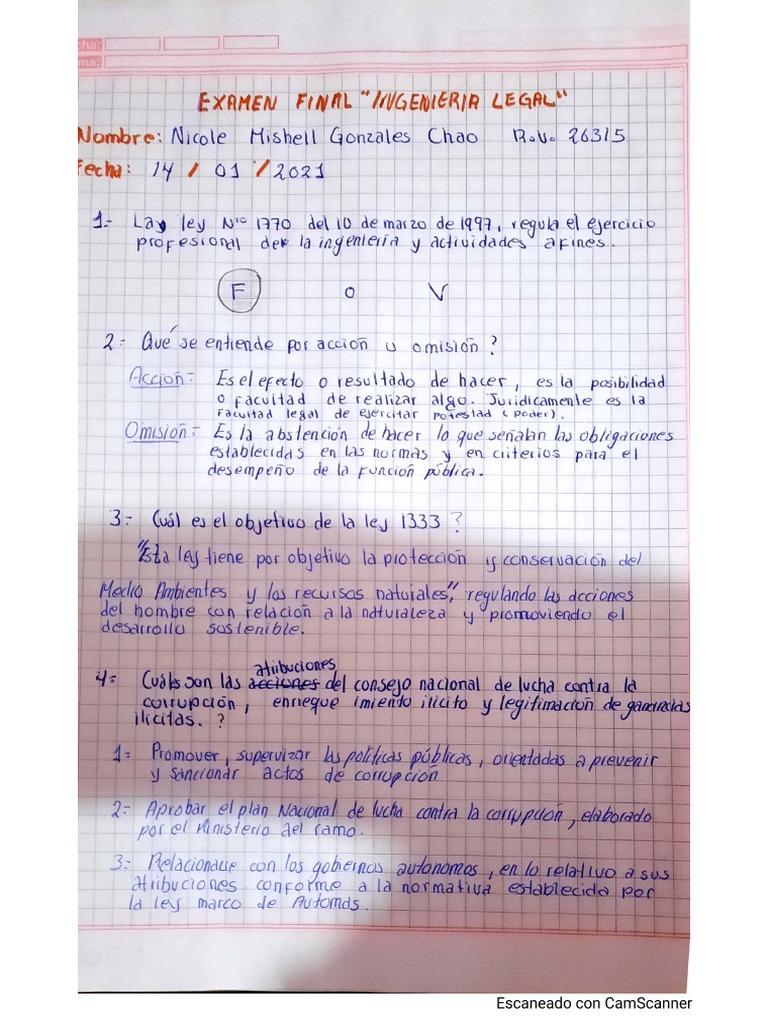 cha:
ma:
EXAMEN FINAL "INGENIERIA LEGAL"
Nombre: Nicole Mishell Gonzales Chao R.U. 26315
Fecha: 14 / 01 / 2021
1.- La ley Nro 1770 del 10 de marzo de 1997, regula el ejercicio
profesional de la ingenieria y actividades afines.
F o V
2.- Qué se entiende por acción u omisión?
Acción:- Es el efecto o resultado de hacer, es la posibilidad
o facultad de realizar algo. Juridicamente es la
Facultad legal de ejercitar potestad (poder).
Omisión:- Es la abstención de hacer lo que señalan las obligaciones
establecidas en las normas y en criterios para el
desempeño de la función pública.
3.- Cuál es el objetivo de la ley 1333?
"Esta ley tiene por objetivo la protección y conservación del
Medio Ambientes y los recursos naturales", regulando las acciones
del hombre con relación a la naturaleza y promoviendo el
desarrollo sostenible.
atribuciones
4.- Cuáles son las acciones del consejo nacional de lucha contra la
corrupción, enriequeimiento ilicito y legitimación de ganancias
ilicitas.?
1.- Promover, supervizar las politicas públicas, orientadas a prevenir
y sancionar actos de corrupción
2.- Aprobar el plan Nacional de lucha contra la corrupción, elaborado
por el Ministerio del ramo.
3.- Relacionarse con los gobiernos autonomos, en lo relativo a sus
atribuciones conforme a la normativa establecida por
la ley marco de Automas.
Escaneado con CamScanner